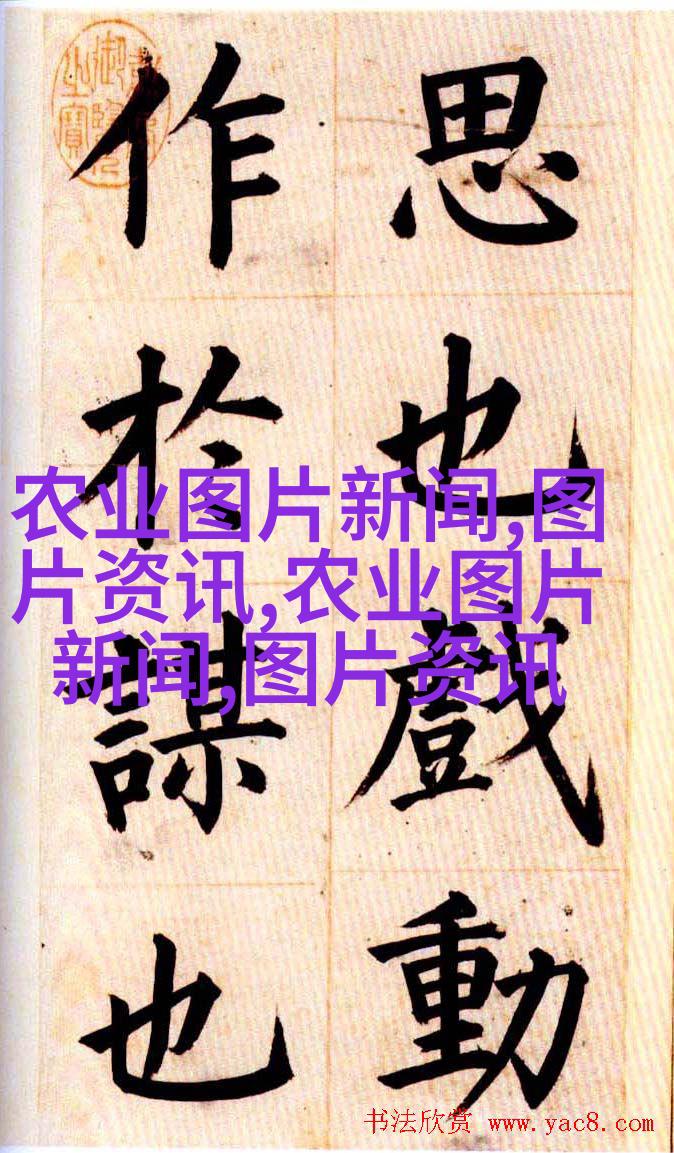 思也戲動
作於謀也
农业图片新闻,图
片资讯,农业图片
新闻,图片资讯
书法欣赏 www.yac8.com